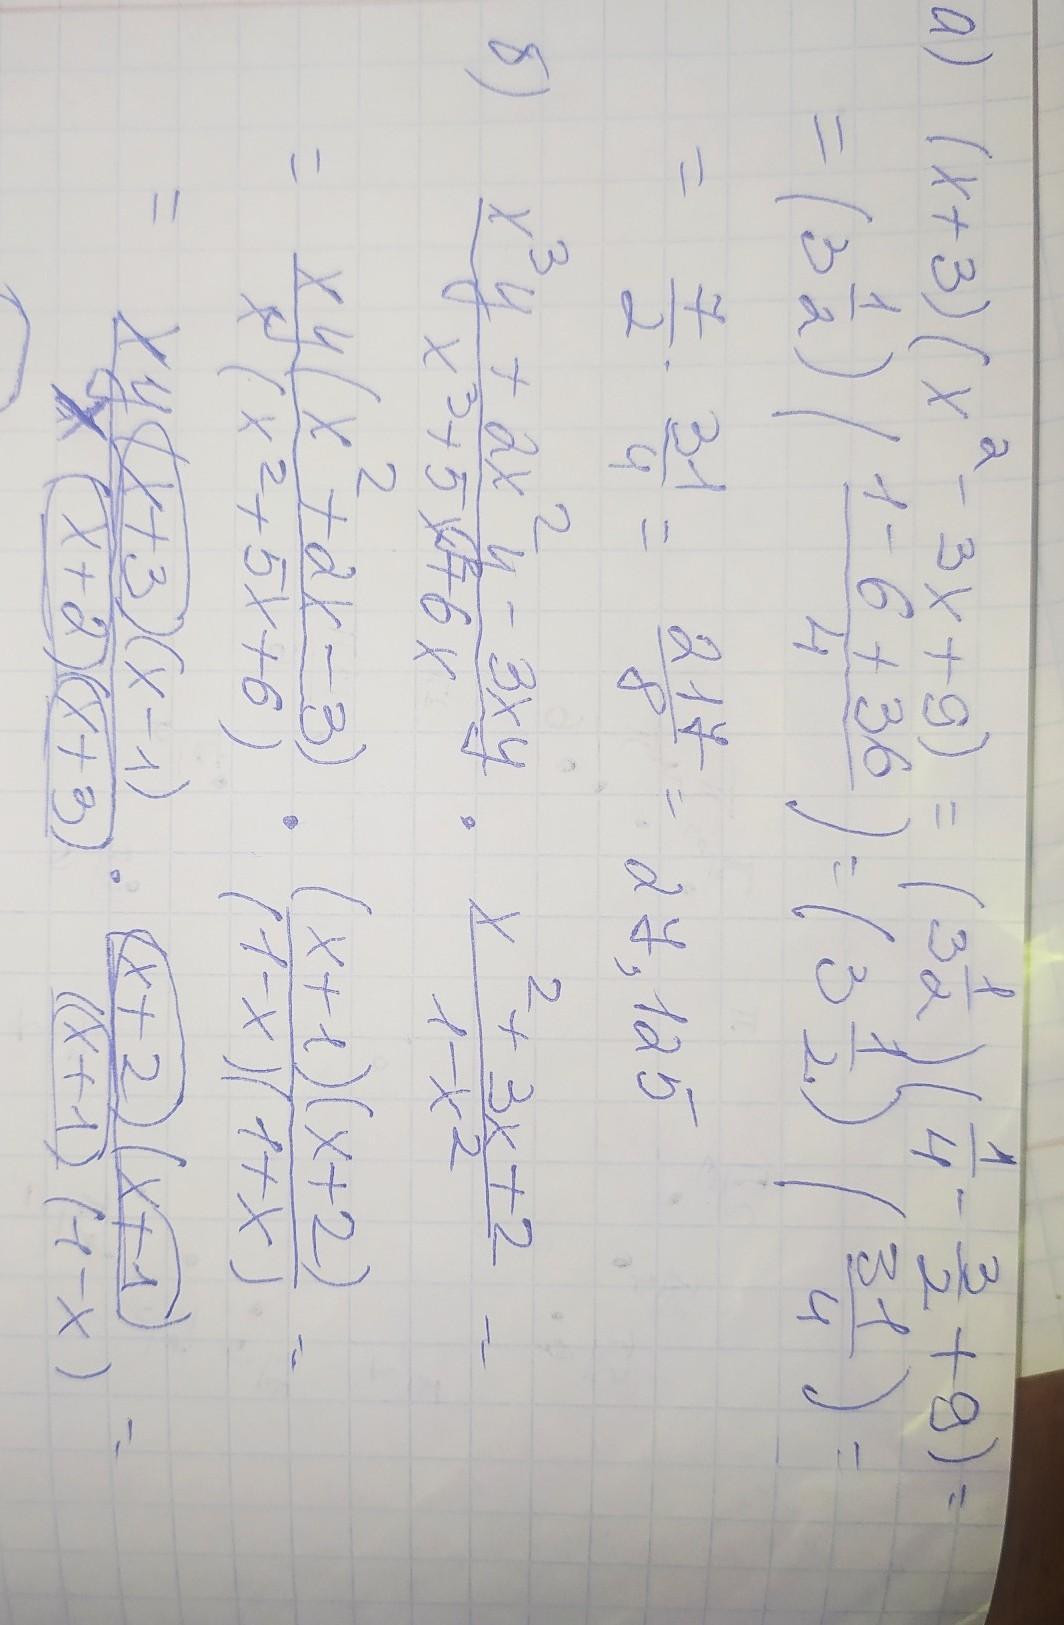 а) (x+3)(x² - 3x + 9) = (3 1/2)(1/4 - 3/2 + 9) =
= (3 1/2)((1 - 6 + 36)/4) = (3 1/2)(31/4) =
= 7/2 · 31/4 = 217/8 = 27,125
б) (x³y + 2x²y - 3xy)/(x³ + 5x² + 6x) · (x² + 3x + 2)/(1 - x²) =
= xy(x² + 2x - 3)/x(x² + 5x + 6) · (x+1)(x+2)/(1-x)(1+x) =
= xy(x+3)(x-1)/x(x+2)(x+3) · (x+2)(x+1)/(x+1)(1-x) =